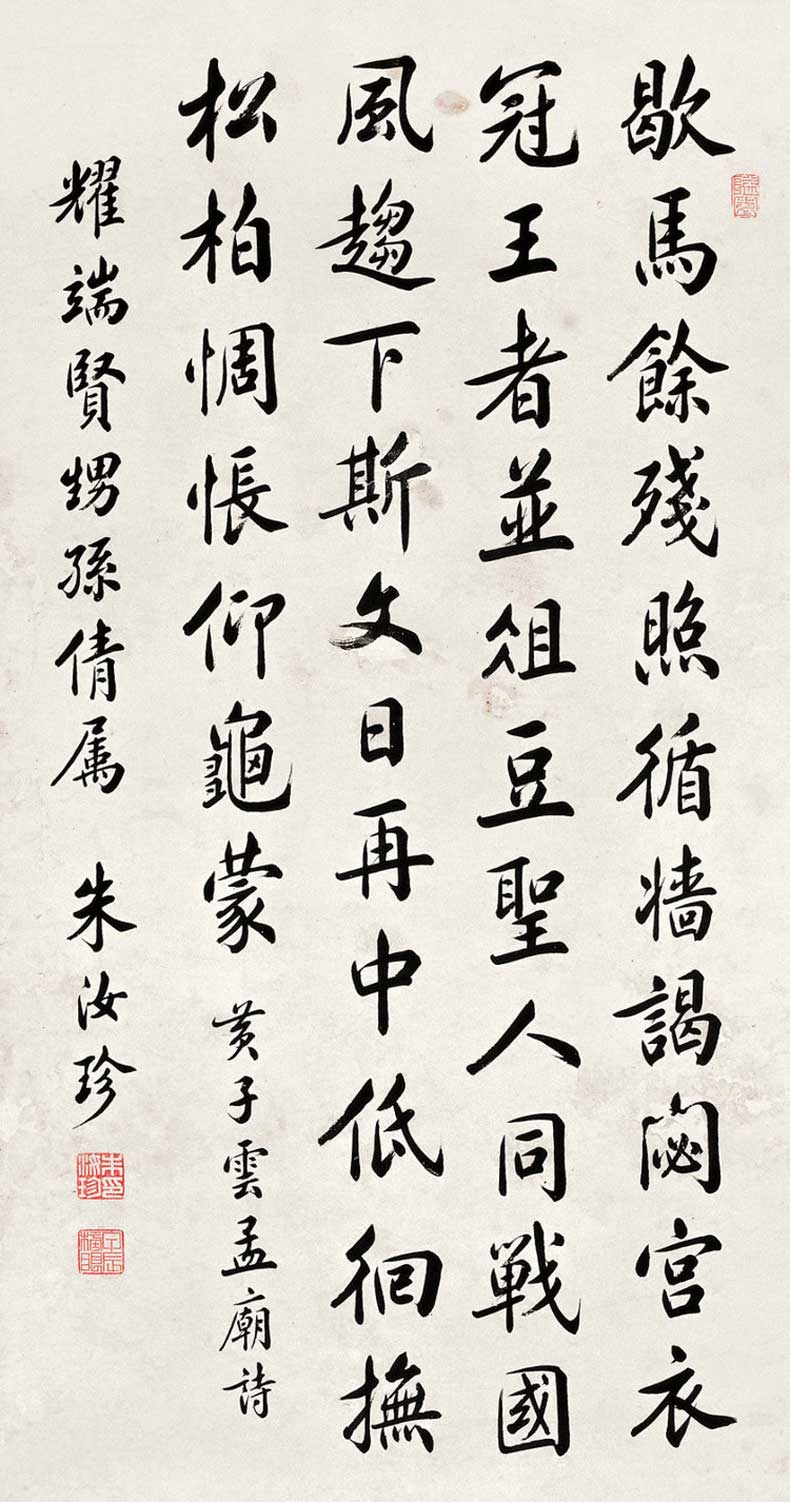 歇馬餘殘照循墻謁閟宮衣
冠王者並俎豆聖人同戰國
風趨下斯文日再中低徊撫
松柏惆悵仰龜蒙 黃子雲孟廟詩
耀端賢甥孫倩属 朱汝珍
朱汝珍印
甲辰榜眼